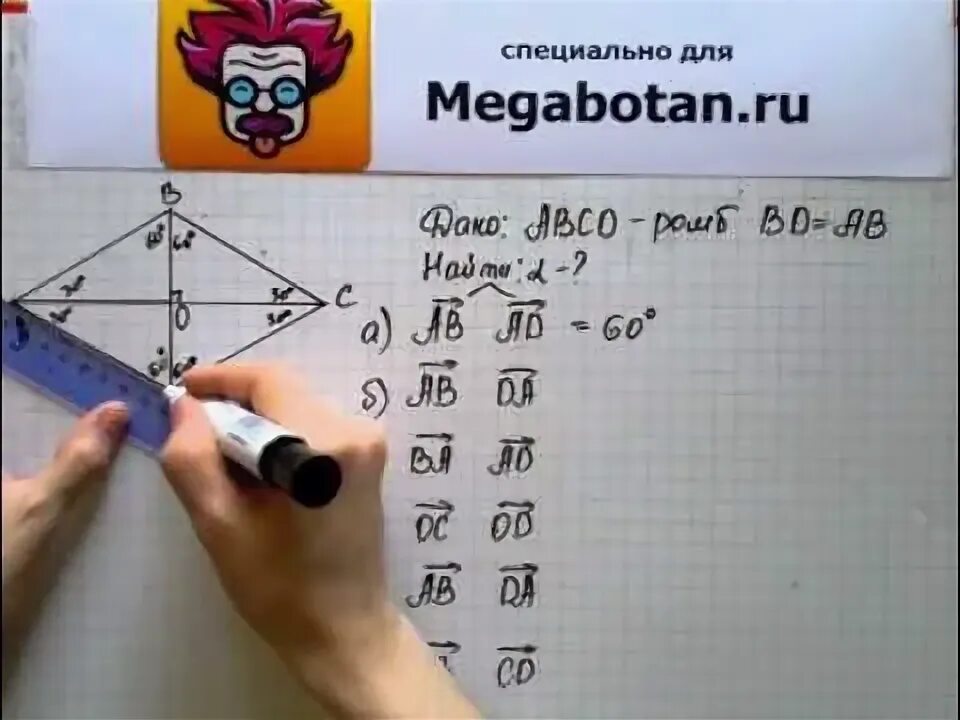 специально для
Megabotan.ru
B
60°
30° 30° C
30° O 30°
60° 60°
Дано: ABCD - ромб BD = AB
Найти: α - ?
а) AB AD = 60°
б) AB DA
BA AD
OC OD
AB DA
CD